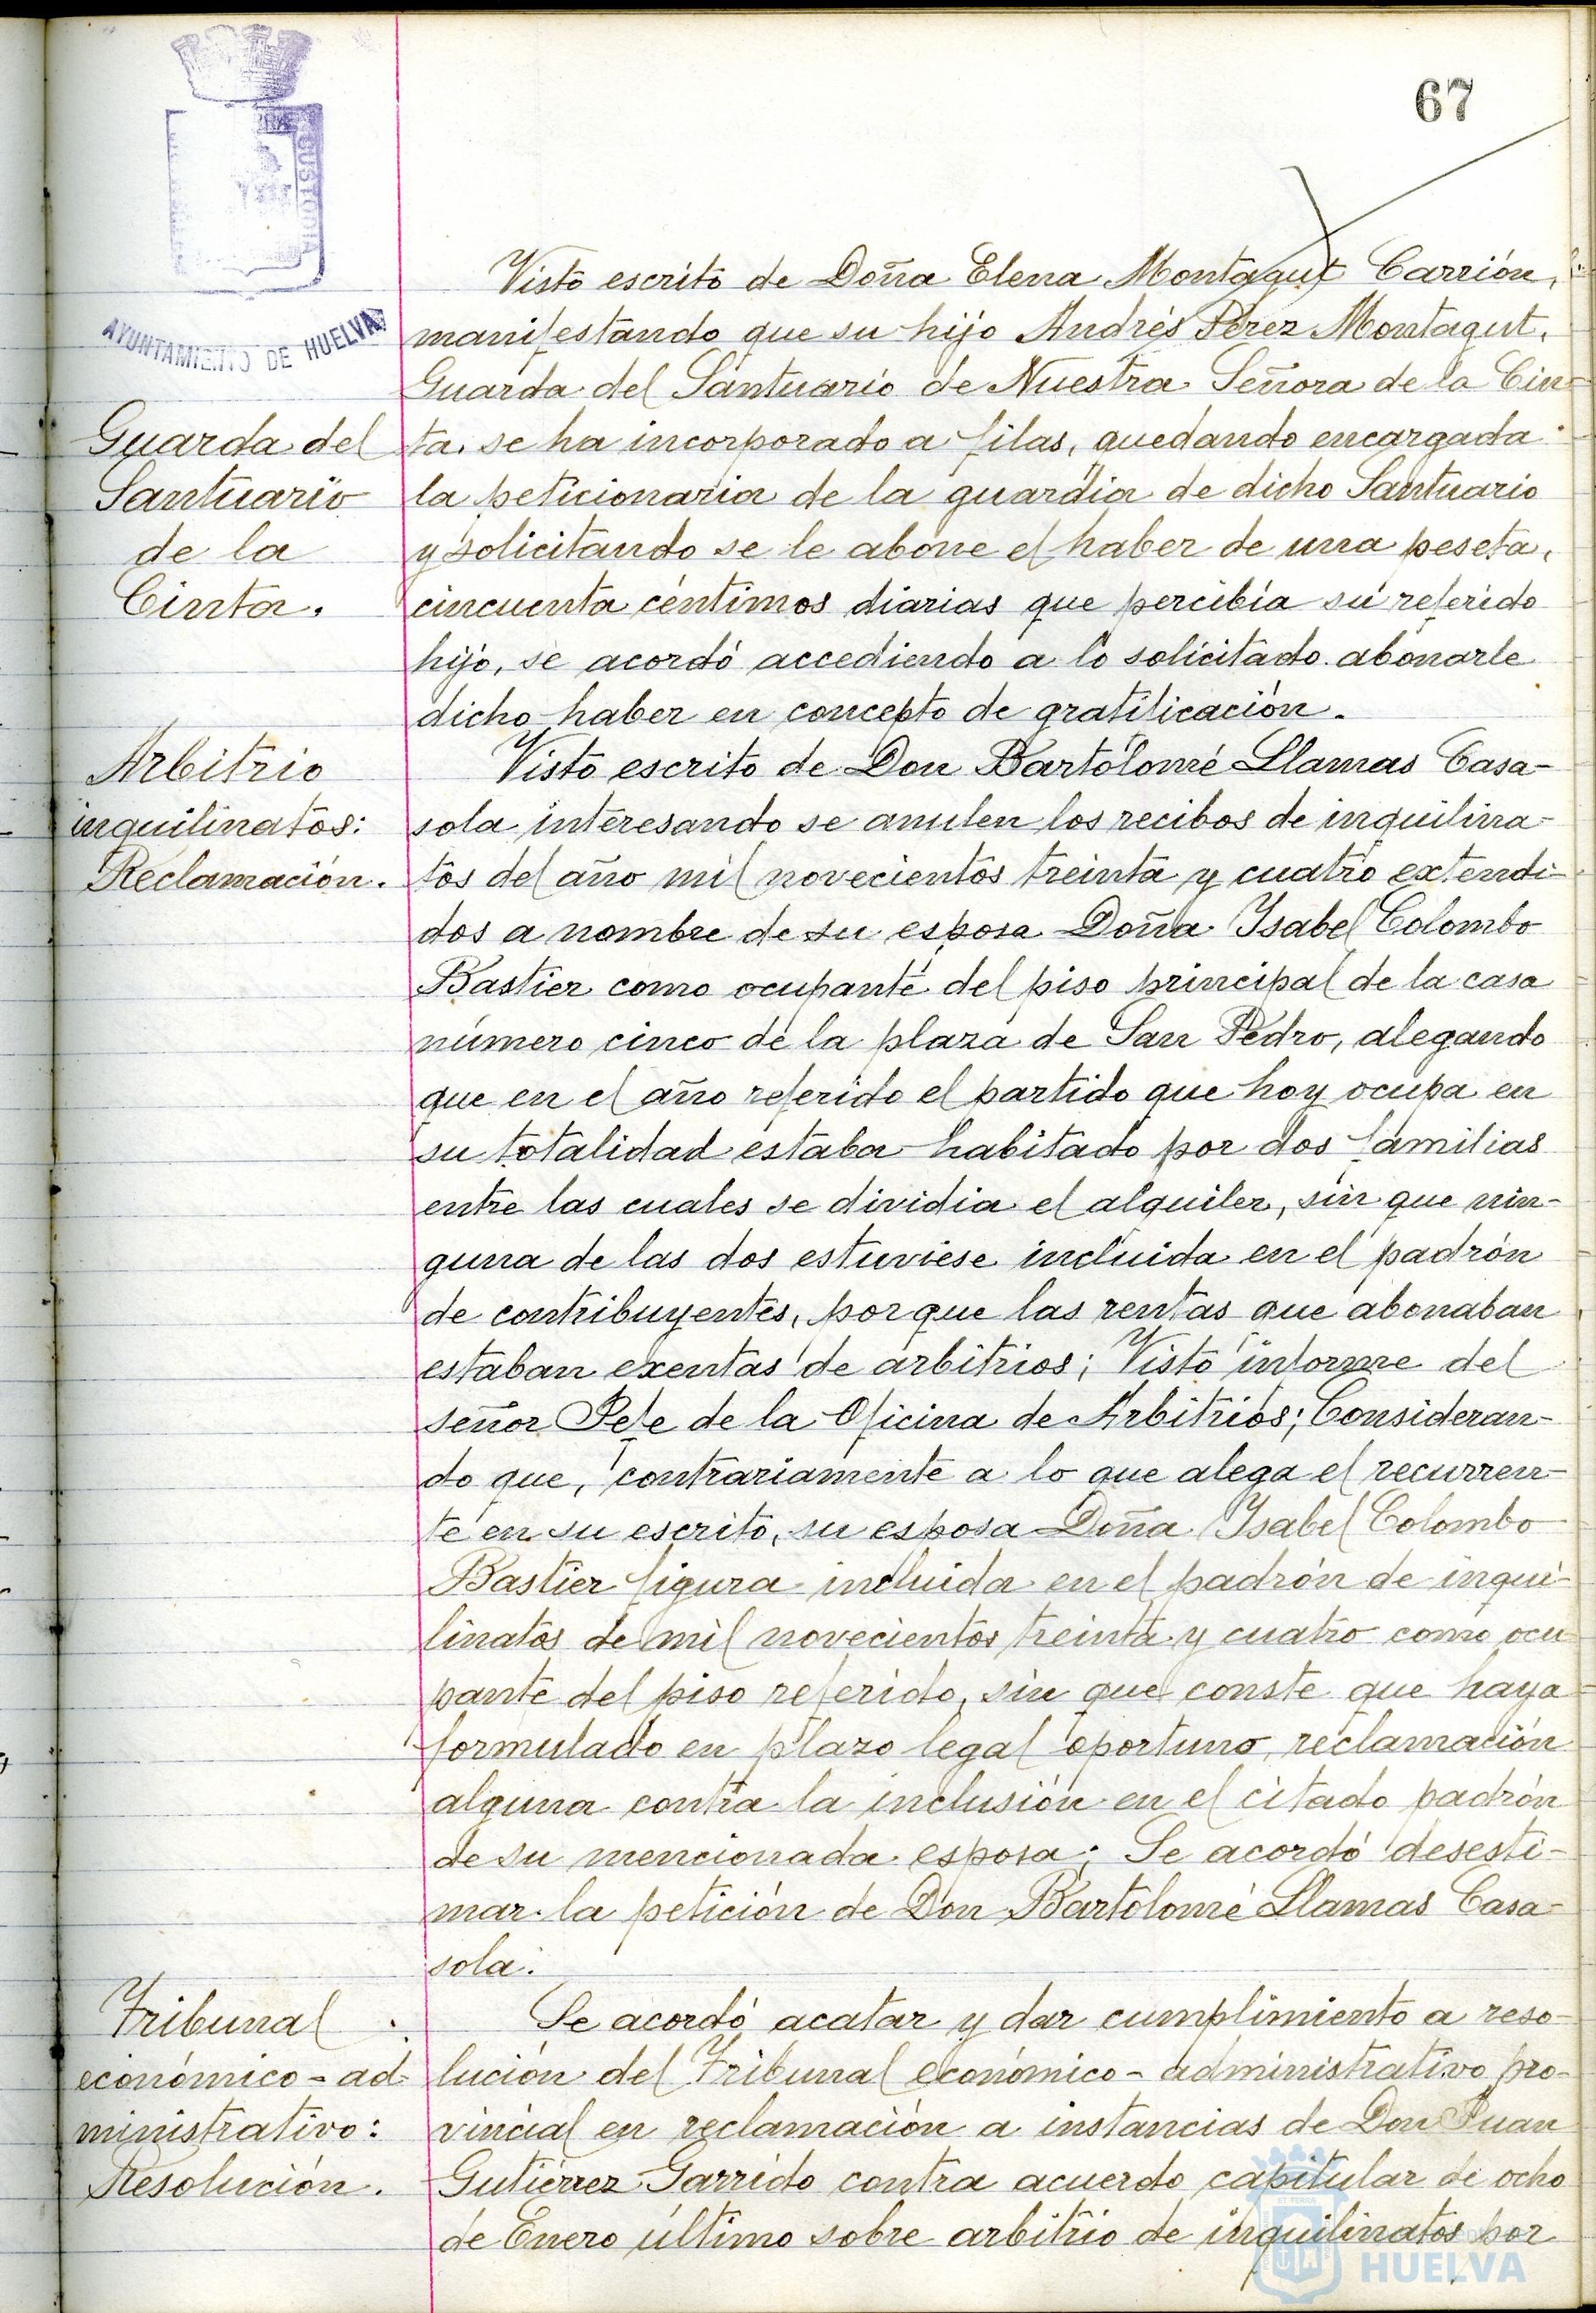 67
CUSTODIA
AYUNTAMIENTO DE HUELVA
Visto escrito de Doña Elena Montagut Carrión,
manifestando que su hijo Andrés Pérez Montagut,
Guarda del Santuario de Nuestra Señora de la Cin-
ta, se ha incorporado a filas, quedando encargada
la peticionaria de la guardia de dicho Santuario
y solicitando se le abone el haber de una peseta,
cincuenta céntimos diarias que percibía su referido
hijo, se acordó accediendo a lo solicitado abonarle
dicho haber en concepto de gratificación.
Guarda del
Santuario
de la
Cinta.
Visto escrito de Don Bartolomé Llamas Casa-
sola interesando se anulen los recibos de inquilina-
tos del año mil novecientos treinta y cuatro extendi-
dos a nombre de su esposa Doña Isabel Colombo
Bastier como ocupante del piso principal de la casa
número cinco de la plaza de San Pedro, alegando
que en el año referido el partido que hoy ocupa en
su totalidad estaba habitado por dos familias
entre las cuales se dividia el alquiler, sin que nin-
guna de las dos estuviese incluida en el padrón
de contribuyentes, porque las rentas que abonaban
estaban exentas de arbitrios; Visto informe del
señor Jefe de la Oficina de Arbitrios; Consideran-
do que, contrariamente a lo que alega el recurren-
te en su escrito, su esposa Doña Isabel Colombo
Bastier figura incluida en el padrón de inqui-
linatos de mil novecientos treinta y cuatro como ocu
pante del piso referido, sin que conste que haya
formulado en plazo legal oportuno, reclamación
alguna contra la inclusión en el citado padrón
de su mencionada esposa; Se acordó desesti-
mar la petición de Don Bartolomé Llamas Casa-
sola.
Arbitrio
inquilinatos:
Reclamación.
Se acordó acatar y dar cumplimiento a reso-
lución del Tribunal económico-administrativo pro-
vincial en reclamación a instancias de Don Juan
Gutiérrez Garrido contra acuerdo capitular de ocho
de Enero último sobre arbitrio de inquilinatos por
Tribunal
económico-ad-
ministrativo:
Resolución.
HUELVA